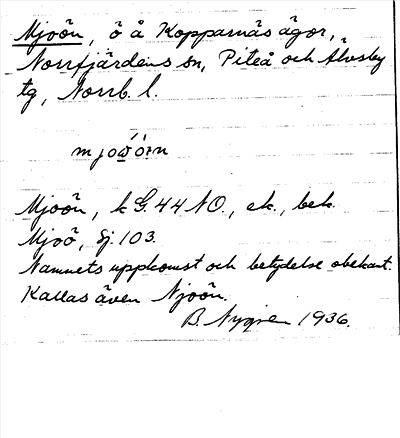 Mjoön, ö å Kopparnäs ägor,
Norrfjärdens sn, Piteå och Älvsby
tg, Norrb. l.
Mjoön, k G. 44 NO., ek., bek.
Mjoö, Sj. 103.
Namnets uppkomst och betydelse obekant.
Kallas även Njoön.
B. Nygren 1936.